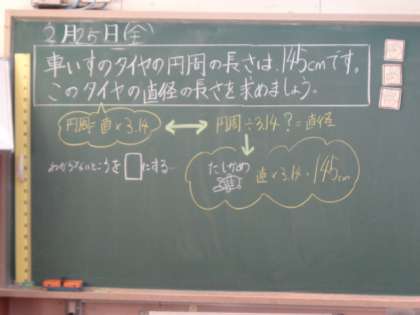 2月25日(金)
車いすのタイヤの円周の長さは、145cmです。
このタイヤの直径の長さを求めましょう。
円周=直×3.14
円周÷3.14?=直径
わからないところを□にする
たしかめ
直×3.14=145cm